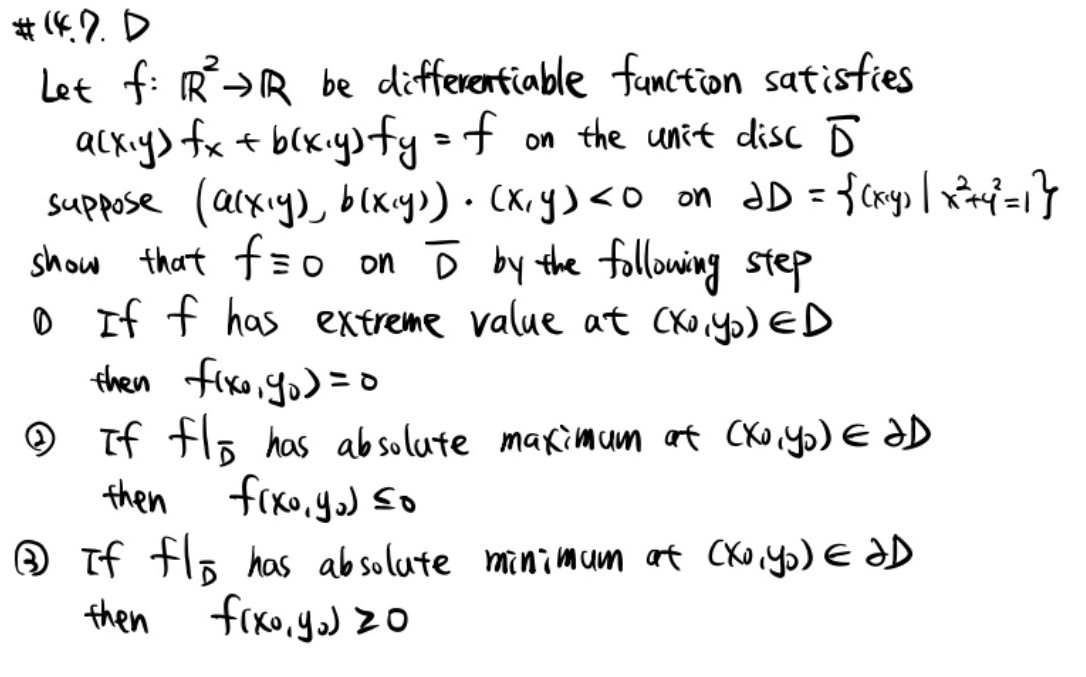 # 14.7. D
Let f: ℝ² → ℝ be differentiable function satisfies
a(x,y) fx + b(x,y) fy = f on the unit disc D̅
suppose (a(x,y), b(x,y)) · (x, y) < 0 on ∂D = {(x,y) | x²+y²=1}
show that f ≡ 0 on D̅ by the following step
① If f has extreme value at (x₀,y₀) ∈ D
then f(x₀,y₀) = 0
② If f|D̅ has absolute maximum at (x₀,y₀) ∈ ∂D
then f(x₀,y₀) ≤ 0
③ If f|D̅ has absolute minimum at (x₀,y₀) ∈ ∂D
then f(x₀,y₀) ≥ 0